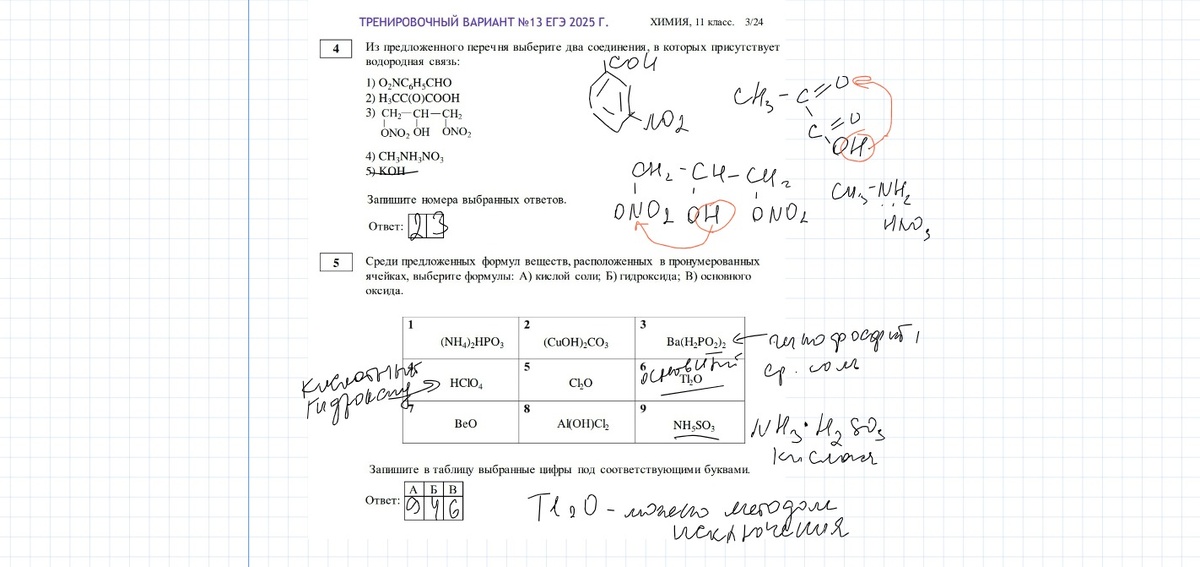 ТРЕНИРОВОЧНЫЙ ВАРИАНТ №13 ЕГЭ 2025 Г. ХИМИЯ, 11 класс. 3/24
4 Из предложенного перечня выберите два соединения, в которых присутствует
водородная связь:
1) O₂NC₆H₅CHO
2) H₃CC(O)COOH
3) CH₂—CH—CH₂
ONO₂ OH ONO₂
4) CH₃NH₃NO₃
5) KOH
Запишите номера выбранных ответов.
Ответ: 2 3
COH
NO2
CH3 - C = O
C = O
OH
CH2 - CH - CH2
ONO2 OH ONO2
CH3-NH2
HNO3
5 Среди предложенных формул веществ, расположенных в пронумерованных
ячейках, выберите формулы: А) кислой соли; Б) гидроксида; В) основного
оксида.
1 2 3
(NH₄)₂HPO₃ (CuOH)₂CO₃ Ba(H₂PO₂)₂
гипофосфит,
ср. соль
5 6
HClO₄ Cl₂O Tl₂O
кислотный
гидроксид
основный
7 8 9
BeO Al(OH)Cl₂ NH₅SO₃
NH3·H2SO3
кислая
Запишите в таблицу выбранные цифры под соответствующими буквами.
Ответ: А Б В
9 4 6
Tl2O - можно методом
исключения